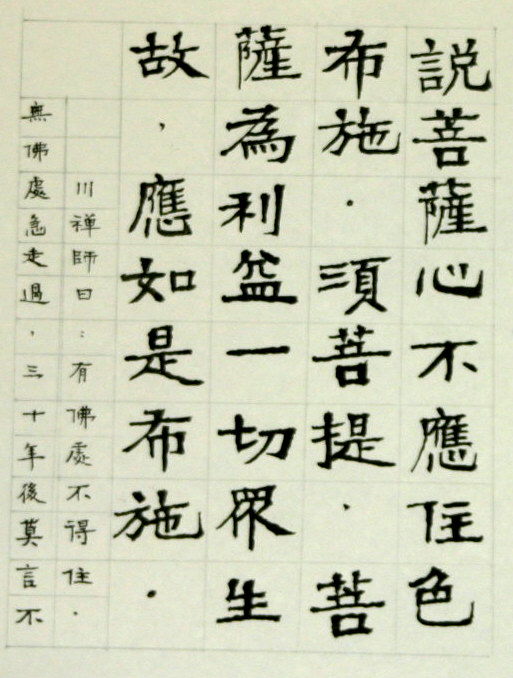 說菩薩心不應住色
布施．須菩提．菩
薩為利益一切眾生
故，應如是布施．
川禪師曰：有佛處不得住．
無佛處急走過，三十年後莫言不